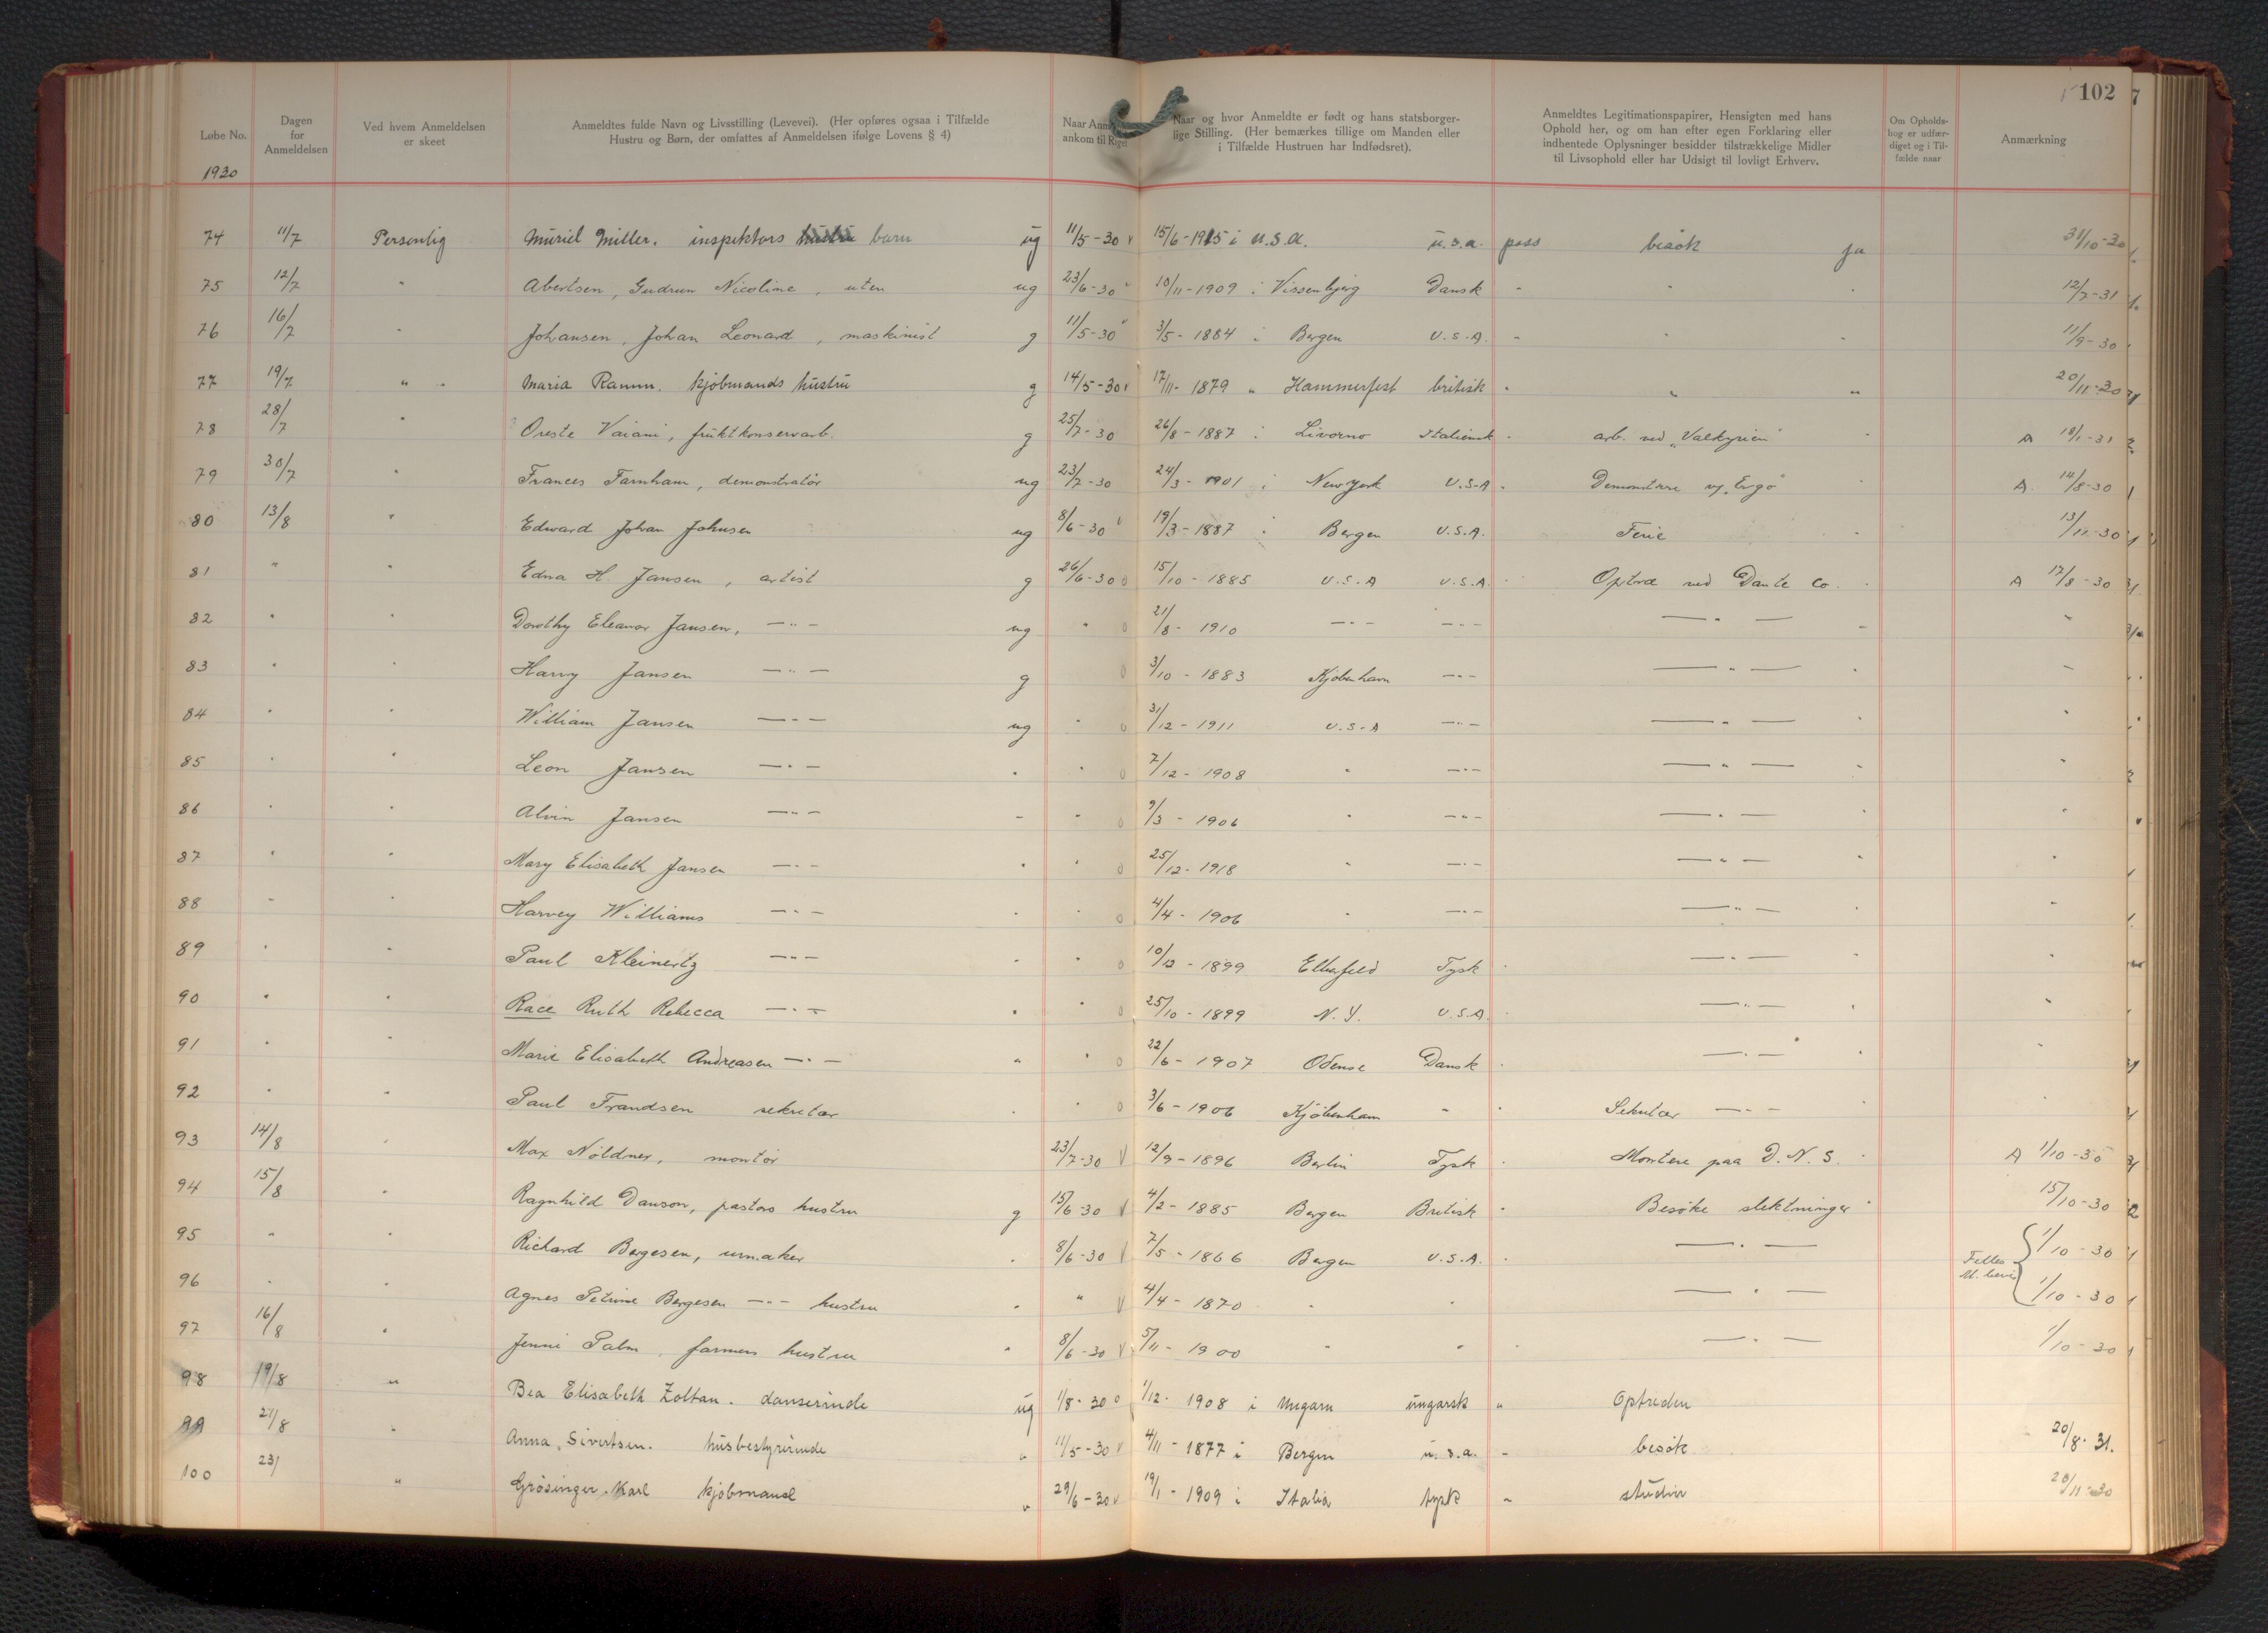 102
7
Løbe No.
Dagen
for
Anmeldelsen
Ved hvem Anmeldelsen
er skeet
Anmeldtes fulde Navn og Livsstilling (Levevei). (Her opføres ogsaa i Tilfælde
Hustru og Børn, der omfattes af Anmeldelsen ifølge Lovens § 4)
Naar
ankom til Riget
Naar og hvor Anmeldte er født og hans statsborger-
lige Stilling. (Her bemærkes tillige om Manden eller
i Tilfælde Hustruen har Indfødsret).
Anmeldtes Legitimationspapirer, Hensigten med hans
Ophold her, og om han efter egen Forklaring eller
indhentede Oplysninger besidder tilstrækkelige Midler
til Livsophold eller har Udsigt til lovligt Erhverv.
Om Opholds-
bog er udfær-
diget og i Til-
fælde naar
Anmærkning
1930
74 11/7 Personlig Muriel Miller. inspektørs barn ug 11/5-30 v 15/6-1915 i U.S.A. u.s.a. pass besøk ja 31/10-30
75 12/7 " Abertsen, Gudrun Nicoline, uten ug 23/6-30 10/11-1909 i Vissenbjerg Dansk " " " 12/7-31
76 16/7 " Johansen, Johan Leonard, maskinist g 11/5-30 v 3/5-1884 i Bergen U.S.A. " " " 11/9-30
77 19/7 " " Maria Ramm. kjøbmands hustru g 14/5-30 v 17/11-1879 " Hammerfest britisk " " " 20/11-30
78 28/7 " Oreste Vaiani, fruktkonservarb. g 25/7-30 26/8-1887 i Livorno Italiensk " arb. ved "Valkyrien" " A 18/1-31
79 30/7 " Frances Farnham, demonstratør ug 23/7-30 24/3-1901 i New York U.S.A " Demonstrere v/ "Ergo" " A 14/8-30
80 13/8 " Edward Johan Johnsen ug 8/6-30 v 19/3-1887 i Bergen U.S.A. Ferie " 13/11-30
81 " " Edna H. Jansen, artist g 26/6-30 0 15/10-1885 U.S.A U.S.A. " Optræ ved Dante Co. " A 17/8-30
82 " " Dorothy Eleanor Jansen, —"— ug " 0 21/8-1910 —"— —"— —"— " "
83 " " Harry Jansen —"— g 0 3/10-1883 Kjøbenhavn —"— —"— " "
84 " " William Jansen —"— ug " 0 31/12-1911 U.S.A —"— —"— " "
85 " " Leon Jansen —"— " " 0 7/12-1908 " —"— —"— " "
86 " " Alvin Jansen —"— " " 0 9/3-1906 " —"— —"— " "
87 " " Mary Elisabeth Jansen —"— " " 0 25/12-1918 " —"— —"— " "
88 " " Harvey Williams —"— " " 0 4/4-1906 " —"— —"— " "
89 " " Paul Kleinertz —"— " " 0 10/12-1899 Elberfeld Tysk " —"— "
90 " " Race Ruth Rebecca —"— " " 0 25/10-1899 N.Y. U.S.A. " —"— " "
91 " " Marie Elisabeth Andreasen —"— " " 0 22/6-1907 Odense Dansk " —"— " "
92 " " Paul Frandsen sekretær " " 0 3/6-1906 Kjøbenhavn " " Sekretær —"— " "
93 14/8 " Max Nöldner, montør 23/7-30 V 12/9-1896 Berlin Tysk " Montere paa D.N.S. " A 1/10-30
94 15/8 " Ragnhild Danson, pastors hustru g 15/6-30 V 4/2-1885 Bergen Britisk " Besøke slektninger " 15/10-30
95 " Richard Børgesen, urmaker " 8/6-30 V 7/5-1866 Bergen U.S.A. " —"— Felles 1/10-30
96 " " Agnes Petrine Børgesen —"— hustru " " V 4/4-1870 " " —"— 1/10-30
97 16/8 " Jenni Palm, farmers hustru " 8/6-30 V 5/11-1900 " " " —"— 1/10-30
98 19/8 " Bea Elisabeth Zoltan. danserinde ug 1/8-30 0 1/12-1908 i Ungarn ungarsk " Optræden
99 21/8 " Anna Sivertsen. husbestyrerinde " 11/5-30 V 4/11-1877 i Bergen u.s.a. " besøk 20/8-31.
100 23/ " Grösinger, Karl kjøbmand " 29/6-30 v 19/1-1909 i Italia tysk " studier 28/11-30